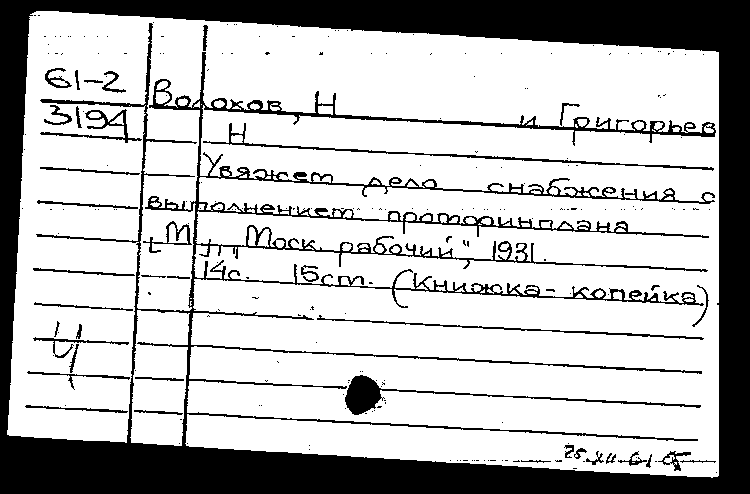 61-2
3194
Волохов, Н и Григорьев
Н
Увяжет дело снабжения с
выполнением промфинплана.
[М.], „Моск. рабочий", 1931.
14с. 15ст. (Книжка-копейка)
Ч
25.XII.61